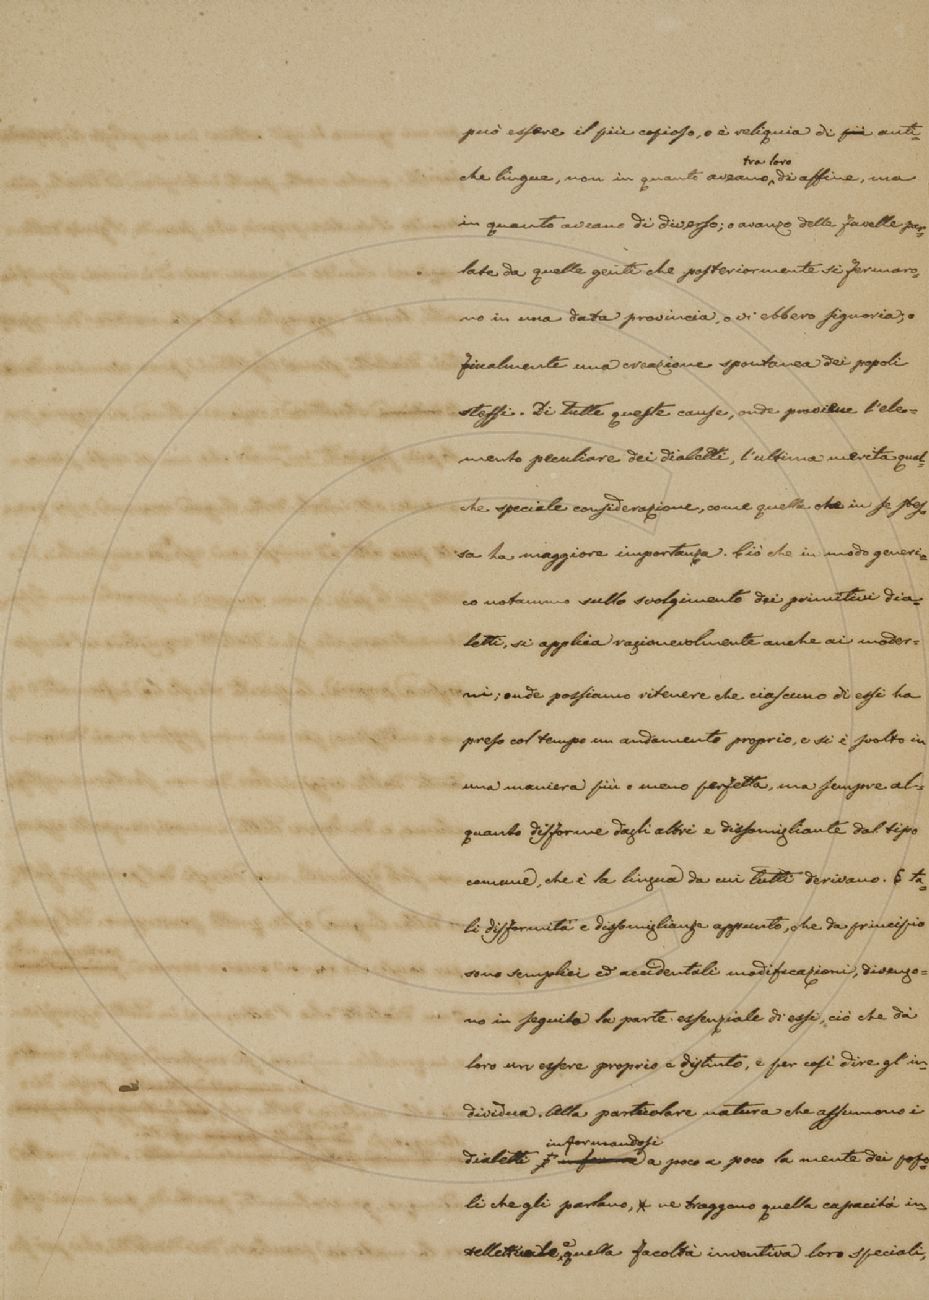 può essere il più copioso, o è reliquia di più anti-
che lingue, non in quanto aveano tra loro di affine, ma
in quanto aveano di diverso; o avanzo delle favelle par-
late da quelle genti che posteriormente si fermaro-
no in una data provincia, o vi ebbero signoria; o
finalmente una creazione spontanea dei popoli
stessi. Di tutte queste cause, onde proviene l'ele-
mento peculiare dei dialetti, l'ultima merita qual-
che speciale considerazione, come quella che in se stes-
sa ha maggiore importanza. Ciò che in modo generi-
co notammo sullo svolgimento dei primitivi dia-
letti, si applica ragionevolmente anche ai moder-
ni; onde possiamo ritenere che ciascuno di essi ha
preso col tempo un andamento proprio, e si è svolto in
una maniera più o meno perfetta, ma sempre al-
quanto difforme dagli altri e dissomigliante dal tipo
comune, che è la lingua da cui tutti derivano. E ta-
li difformità e dissomiglianze appunto, che da principio
sono semplici ed accidentali modificazioni, divengo-
no in seguito la parte essenziale di essi, ciò che dà
loro un essere proprio e distinto, e per così dire gl'in-
dividua. Alla particolare natura che assumono i
dialetti informandosi a poco a poco la mente dei popo-
li che gli parlano, ne traggono quella capacità in-
tellettuale, e quella facoltà inventiva loro speciali,